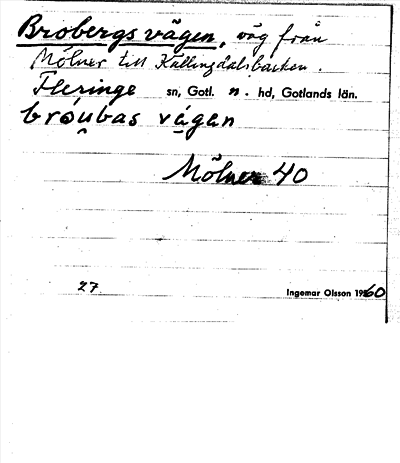 Brobergs vägen, väg från
Mölner till Källingdalsbacken.
Fleringe sn, Gotl. n. hd, Gotlands län.
bróubas vágan
Mölner 40
27 Ingemar Olsson 1960